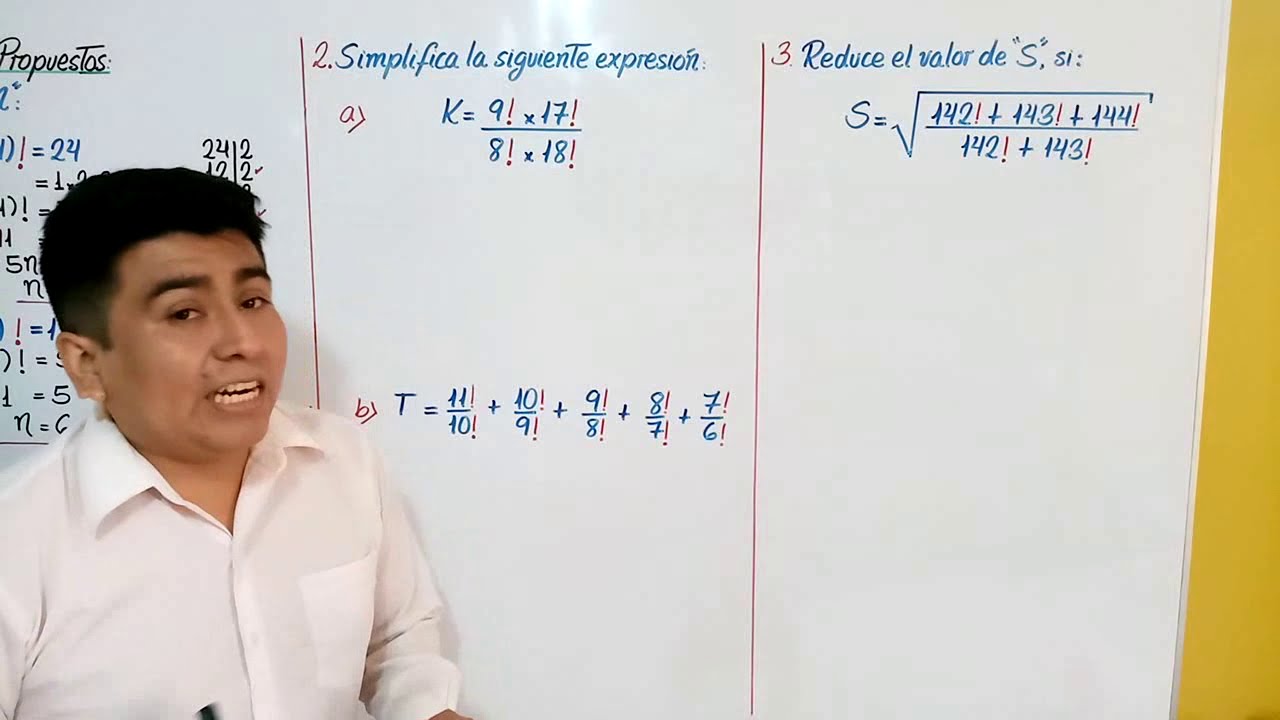 Propuestos:
)! = 24
24 | 2
12 | 2
)! =
5n
n
)! =
1 = 5
n = 6
2. Simplifica la siguiente expresión:
a) K = 9! x 17!
8! x 18!
b) T = 11!/10! + 10!/9! + 9!/8! + 8!/7! + 7!/6!
3. Reduce el valor de "S", si:
S = √ 142! + 143! + 144!
142! + 143!